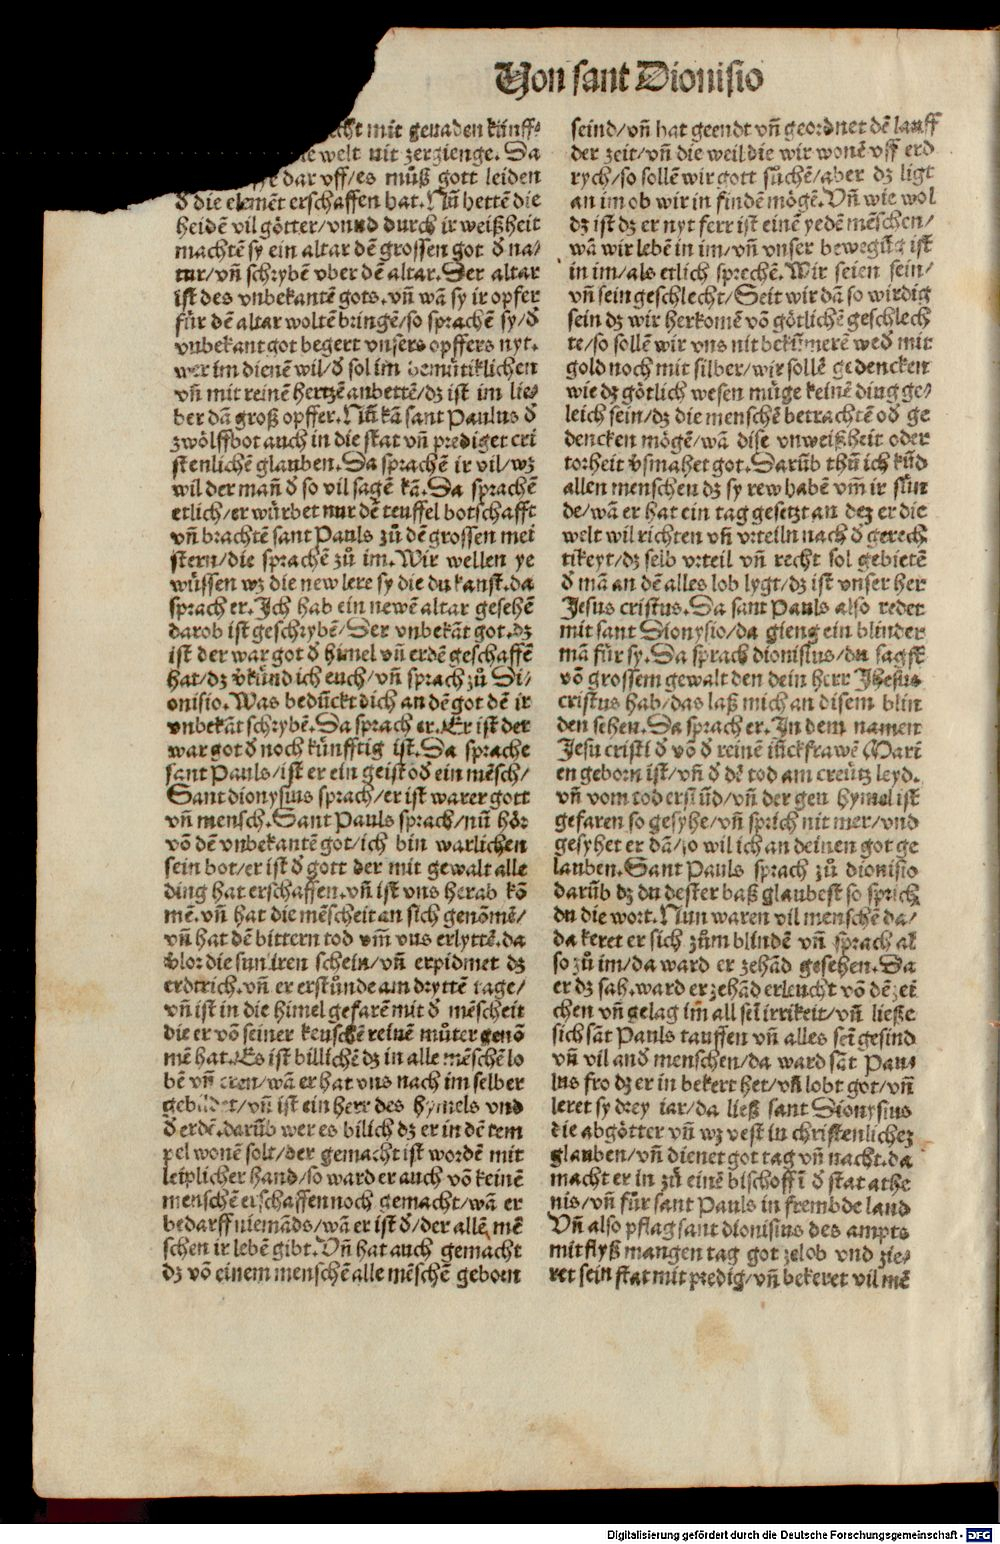 Von sant Dionisio
mit genaden künff⸗
welt nit zergienge. Da
dar vff/es müß gott leiden
d̄ die elemēt erschaffen hat. Nū hettē die
heidē vil götter/vnnd durch ir weißheit
machtē sy ein altar dē grossen got d̄ na/
tur/vn̄ schrybē vber dē altar. Der altar
ist des vnbekantē gots. vn̄ wā sy ir opfer
für dē altar woltē bringē/so sprachē sy/d̄
vnbekant got begert vnsers opffers nyt.
wer im dienē wil/d̄ sol im demütiklichen
vn̄ mit reinē hertzē anbettē/dz ist im lie⸗
ber dā groß opffer. Nū kā sant Paulus d̄
zwölffbot auch in die stat vn̄ prediget cri
stenlichē glauben. Da sprachē ir vil/wz
wil der man̄ d̄ so vil sagē kā. Da sprachē
etlich/er würbet nur dē teuffel botschafft
vn̄ brachtē sant Pauls zů dē grossen mei
stern/die sprachē zů im. Wir wellen ye
wüssen wz die new lere sy die du kanst. da
sprach er. Ich hab ein newē altar gesehē
darob ist geschrybē/Der vnbekāt got. dz
ist der war got d̄ himel vn̄ erdē geschaffē
hat/dz v̄künd ich euch/vn̄ sprach zů Di⸗
onisio. Was bedückt dich an dē got dē ir
vnbekāt schrybē. Da sprach er. Er ist der
war got d̄ noch künfftig ist. Da sprache
sant Pauls/ist er ein geist od̄ ein mēsch/
Sant dionysius sprach/er ist warer gott
vn̄ mensch. Sant Pauls sprach/nū hör
vō dē vnbekantē got/ich bin warlichen
sein bot/er ist d̄ gott der mit gewalt alle
ding hat erschaffen. vn̄ ist vns herab kō
mē. vn̄ hat die mēscheit an sich genōmē/
vn̄ hat dē bittern tod vm̄ vns erlyttē. da
v̄lor die sun iren schein/vn̄ erpidmet dz
erdtrich. vn̄ er erstůnde am dryttē tage/
vn̄ ist in die himel gefarē mit d̄ mēscheit
die er vō seiner keuschē reinē můter genō
mē hat. Es ist billichē dz in alle mēschē lo
bē vn̄ eren/wā er hat vns nach im selber
gebildet/vn̄ ist ein herr des hymels vnd
d̄ erdē. darūb wer es bilich dz er in dē tem
pel wonē solt/der gemacht ist wordē mit
leiplicher hand/so ward er auch vō keinē
menschē erschaffen noch gemacht/wā er
bedarff niemāds/wā er ist d̄/der allē mē
schen ir lebē gibt. Vn̄ hat auch gemacht
dz vō einem menschē alle mēschē geborn
seind/vn̄ hat geendt vn̄ geordnet dē lauff
der zeit/vn̄ die weil die wir wonē vff erd
rych/so sollē wir gott süchē/aber dz ligt
an im ob wir in findē mögē. Vn̄ wie wol
dz ist dz er nyt ferr ist einē yedē mēschen/
wā wir lebē in im/vn̄ vnser bewegūg ist
in im/als etlich sprechē. Wir seien sein/
vn̄ sein geschlecht/Seit wir dā so wirdig
sein dz wir herkomē vō götlichē geschlech
te/so sollē wir vns nit bekümerē wed̄ mit
gold noch mit silber/wir sollē gedencken
wie dz götlich wesen müge keinē ding ge⸗
leich sein/dz die menschē betrachtē od̄ ge
dencken mögē/wā dise vnweißheit oder
torheit v̄smahet got. Darūb thū ich kūd
allen menschen dz sy rew habē vm̄ ir sün
de/wā er hat ein tag gesetzt an dez er die
welt wil richten vn̄ vrteiln nach d̄ gerech
tikeyt/dz selb vrteil vn̄ recht sol gebietē
d̄ mā an dē alles lob lygt/dz ist vnser her
Jesus cristus. Da sant Pauls also redet
mit sant Dionysio/da gieng ein blinder
mā für sy. Da sprach dionisius/du sagst
vō grossem gewalt den dein herr Jhesus
cristus hab/das laß mich an disem blin
den sehen. Da sprach er. In dem namen
Jesu cristi d̄ vō d̄ reinē iūckfrawē Mari
en geborn ist/vn̄ d̄ dē tod am creütz leyd.
vn̄ vom tod erstūd/vn̄ der gen hymel ist
gefaren so gesyhe/vn̄ sprich nit mer/vnd
gesyhet er dā/so wil ich an deinen got ge
lauben. Sant Pauls sprach zů dionisio
darūb dz du dester baß glaubest so sprich
du die wort. Nun waren vil menschē da/
da keret er sich zům blindē vn̄ sprach al
so zů im/da ward er zehād gesehen. Da
er dz sah. ward er zehād erleucht vō dē zei
chen vn̄ gelag im̄ all sei irrikeit/vn̄ ließe
sich sāt Pauls tauffen vn̄ alles sei gesind
vn̄ vil and̄ menschen/da ward sāt Pau⸗
lus fro dz er in bekert het/vn̄ lobt got/vn̄
leret sy drey iar/da ließ sant Dionysius
die abgötter vn̄ wz vest in christenlichez
glauben/vn̄ dienet got tag vn̄ nacht. da
macht er in zů einē bischoff ī d̄ stat athe
nis/vn̄ für sant Pauls in frembde land
Vn̄ also pflag sant dionisius des ampts
mit flyß mangen tag got ze lob vnd zie⸗
ret sein stat mit predig/vn̄ bekeret vil mē
Digitalisierung gefördert durch die Deutsche Forschungsgemeinschaft - DFG